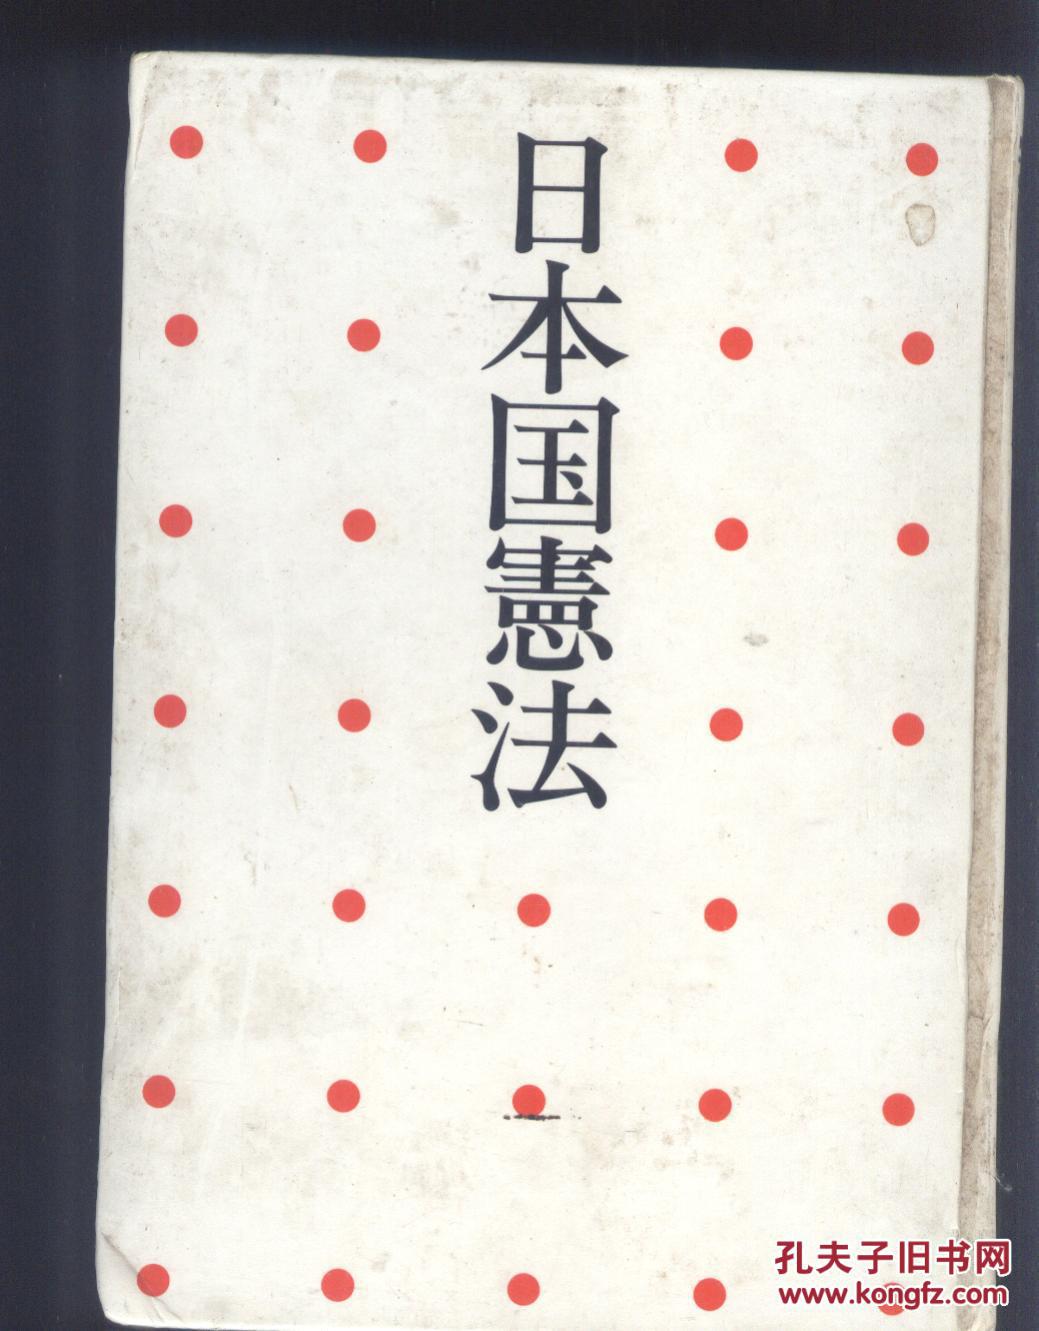 日本国憲法
孔夫子旧书网
www.kongfz.com